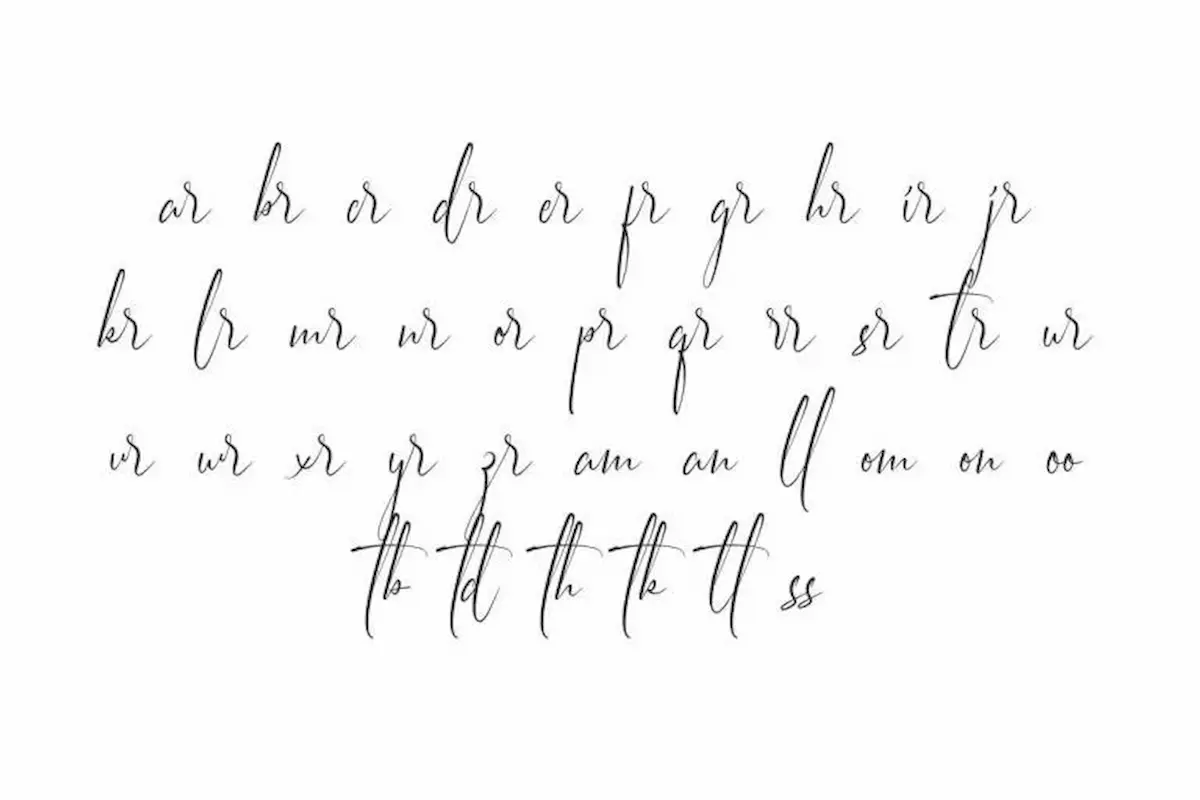 ar br cr dr er fr gr hr ir jr
kr lr mr nr or pr qr rr sr tr ur
vr wr xr yr zr am an ll om on oo
tb td th tk tl ss